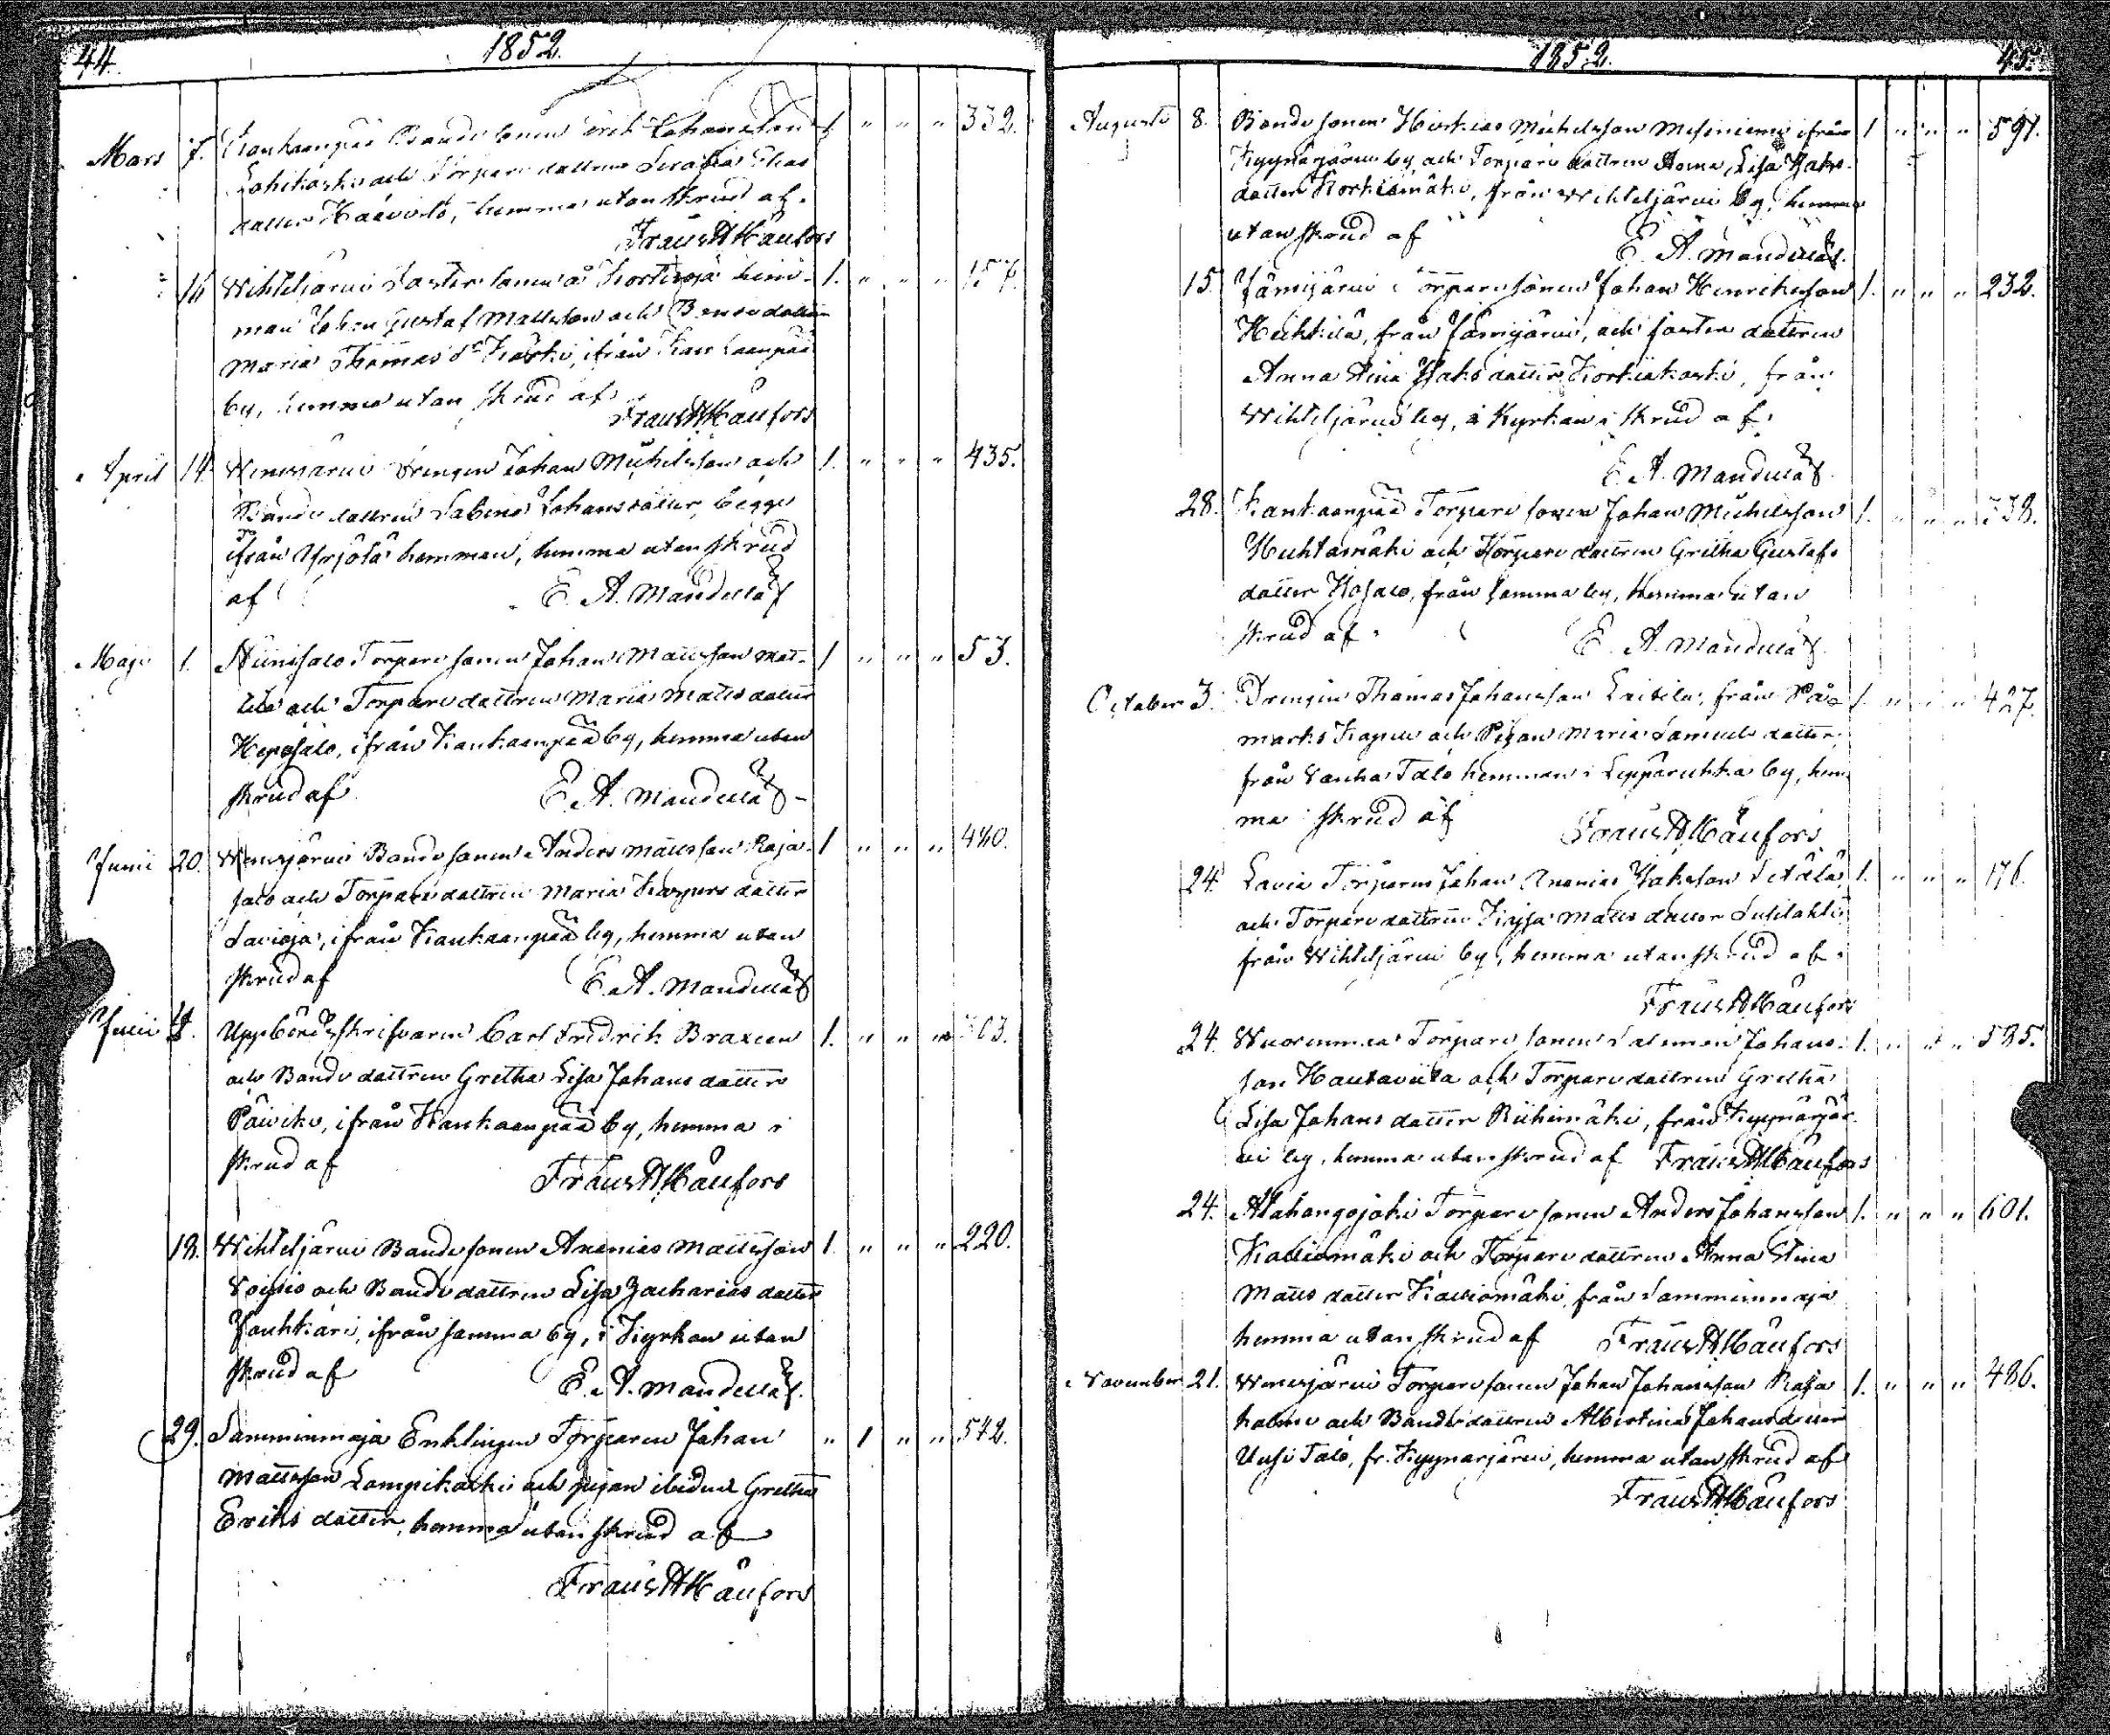 44.
1852.
Mars 7. Kankaanpää Bonde sonen Erik Johansson 1. " " " 332.
Lohikoski och Torpare dottren Serafia Elias
dotter Haavisto, hemma utan skrud af.
Frans H Kaufors
14 Wihteljärvi Inhyses sonen å hemi- 1. " " "
man Johan Gustaf Mattsson och Bonde dottren
Maria Thomas dr Koski, ifrån Kankaanpää
by, hemma utan skrud af
Frans H Kaufors
April 14. Wenesjärvi Drengen Johan Michelsson och 1. " " " 435.
Bonde dottren Sabina Johansdotter, begge
ifrån Yrjölä hemman, hemma utan skrud
af E. A. Mandellöf
Maji 1. Niinisalo Torpare sonen Johan Mattsson Mat- 1 " " " 53.
tila och Torpare dottren Maria Matts dotter
Heposalo, ifrån Kankaanpää by, hemma utan
skrud af E. A. Mandellöf
Junii 20. Wenesjärvi Bonde sonen Anders Mattsson Raja- 1 " " " 440.
salo och Torpare dottren Maria Kaspers dotter
Savioja, ifrån Kankaanpää by, hemma utan
skrud af E. A. Mandellöf
Uppbördsskrifvaren Carl Fredrik Braxen 1. " " "
och Bonde dottren Gretha Lisa Johans dotter
Päivike, ifrån Kankaanpää by, hemma i
skrud af Frans H Kaufors
18. Wihteljärvi Bonde sonen Ananias Mattsson 1. " " " 220.
och Bonde dottren Lisa Zacharias dotter
Jouhkari, ifrån samma by, i Kyrkan utan
skrud af E. A. Mandellöf
29. Samminmaja Enklingen Torparen Johan " 1 " " 542.
Mattsson Lampikoski och pigan ibidem Gretha
Eriks dotter, hemma utan skrud af
Frans H Kaufors
1852. 45.
Augusti 8. Bonde sonen Hiskias Michelsson Mesiniemi ifrån 1 " " " 591.
Kyynärjärvi by och Torpare dottren Anna Lisa Isaks-
dotter Korkiamäki, från Wihteljärvi by, hemma
utan skrud af E. A. Mandellöf.
15. Jämijärvi Torpare sonen Johan Henriksson 1. " " " 232.
Huhtila, från Jämijärvi, och dottren
Anna Stina Isaks dotter Korkiakoski, från
Wihteljärvi by, i Kyrkan i skrud af.
E. A. Mandellöf.
28. Kankaanpää Torpare sonen Johan Michelsson 1. " " " 338.
Huhtamäki och Torpare dottren Gretha Gustafs
dotter från samma by, hemma utan
skrud af. E. A. Mandellöf.
October 3. Drengen Thomas Johansson Laitila, från Påm- 1. " " " 427.
marks Kapell och Pigan Maria Samuels dotter,
från Vanha Talo hemman i Leppäruhka by, hem
ma i skrud af Frans H Kaufors
24. Lavia Torparen Johan Ananias Isaksson Setälä 1. " " " 176.
och Torpare dottren Kajsa Matts dotter Susilahti
från Wihteljärvi by, hemma utan skrud af.
Frans H Kaufors
24. Wuorenmaa Torpare sonen Salomon Johans- 1. " " " 535.
son Hautaviita och Torpare dottren Gretha
Lisa Johans dotter Riihimäki, från Kyynärjär-
vi by, hemma utan skrud af Frans H Kaufors
24. Alahongojoki Torpare sonen Anders Johansson 1. " " " 601.
Kalliomäki och Torpare dottren Anna Stina
Matts dotter Kalliomäki, från Samminmaja
hemma utan skrud af Frans H Kaufors
November 21. Wenesjärvi Torpare sonen Johan Johansson Raja 1. " " " 486.
halme och Bonde dottren Albertina Johansdotter
Uusi Talo, fr. Kyynärjärvi, hemma utan skrud af
Frans H Kaufors